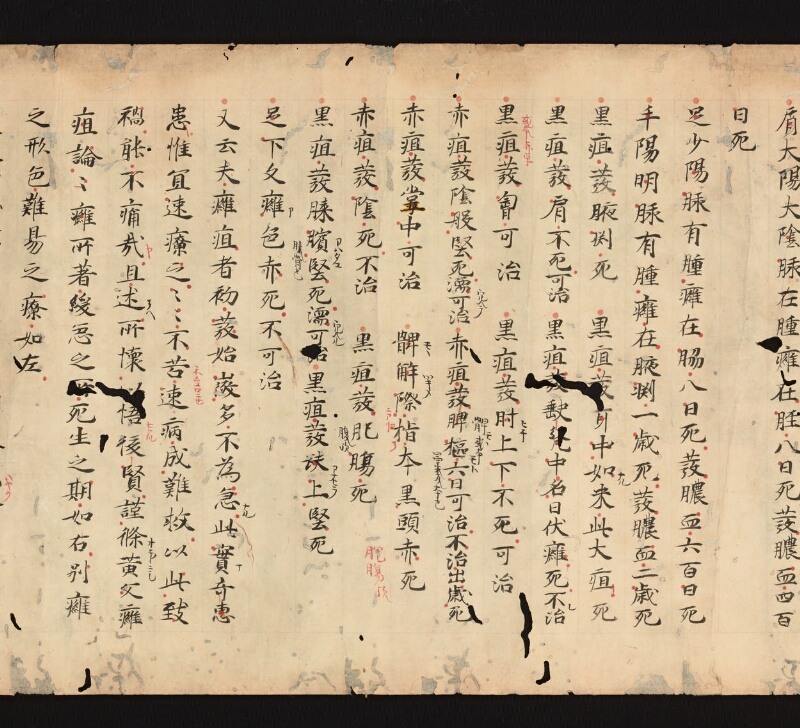 屑大陽大陰脉在腫癰在胫八日死發膿血四百
日死
足少陽脉有腫癰在脇八日死發膿血六百日死
手陽明脉有腫癰在腋渕一歲死發膿血二歲死
黒疽發腋渕死 黒疽發耳中如米此大疽死
黒疽發肩不死可治 黒疽發缺盆中名曰伏癰死不治
黒疽發胷可治 黒疽發肘上下不死可治
赤疽發陰股堅死濡可治 赤疽發髀樞六日可治不治出歲死
赤疽發掌中可治 髀解際指本黒頭赤死
赤疽發陰死不治 黒疽發肥腸死
黒疽發膝臏堅死濡可治 黒疽發趺上堅死
足下久癰色赤死不可治
又云夫癰疽者初發始微多不為急此實奇患
患惟冝速療之〻〻不苦速病成難救以此致
禍能不痛哉且述所懷以悟後賢謹條黄父癰
疽論〻癰所著緩急之死生之期如右別癰
之形色難易之療如左
肥腸